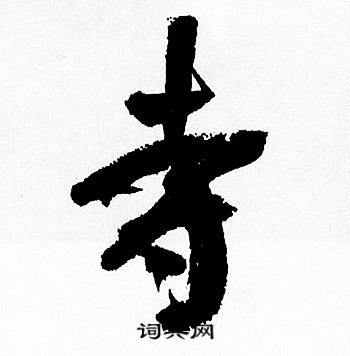 寺
词典网